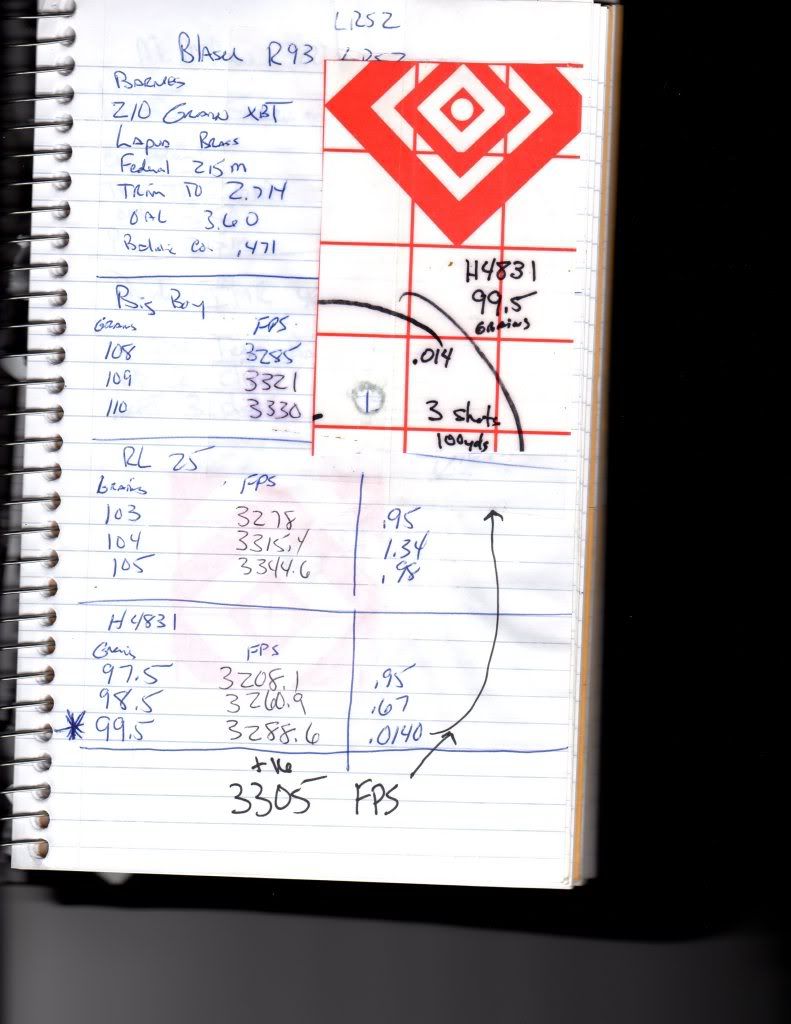 LRS2
Blaser R93 LRS2
Barnes
210 Grain XBT
Lapua Brass
Federal 215m
Trim TO 2.714
OAL 3.60
.471
Big Boy
Grains FPS
108 3285
109 3321
110 3330
H4831
99.5
Grains
.014
1
3 shots
100yds
RL 25
Grains FPS
103 3278 .95
104 3315.4 1.34
105 3344.6 .98
H4831
Grains FPS
97.5 3208.1 .95
98.5 3260.9 .67
99.5 3288.6 .0140
+16
3305 FPS